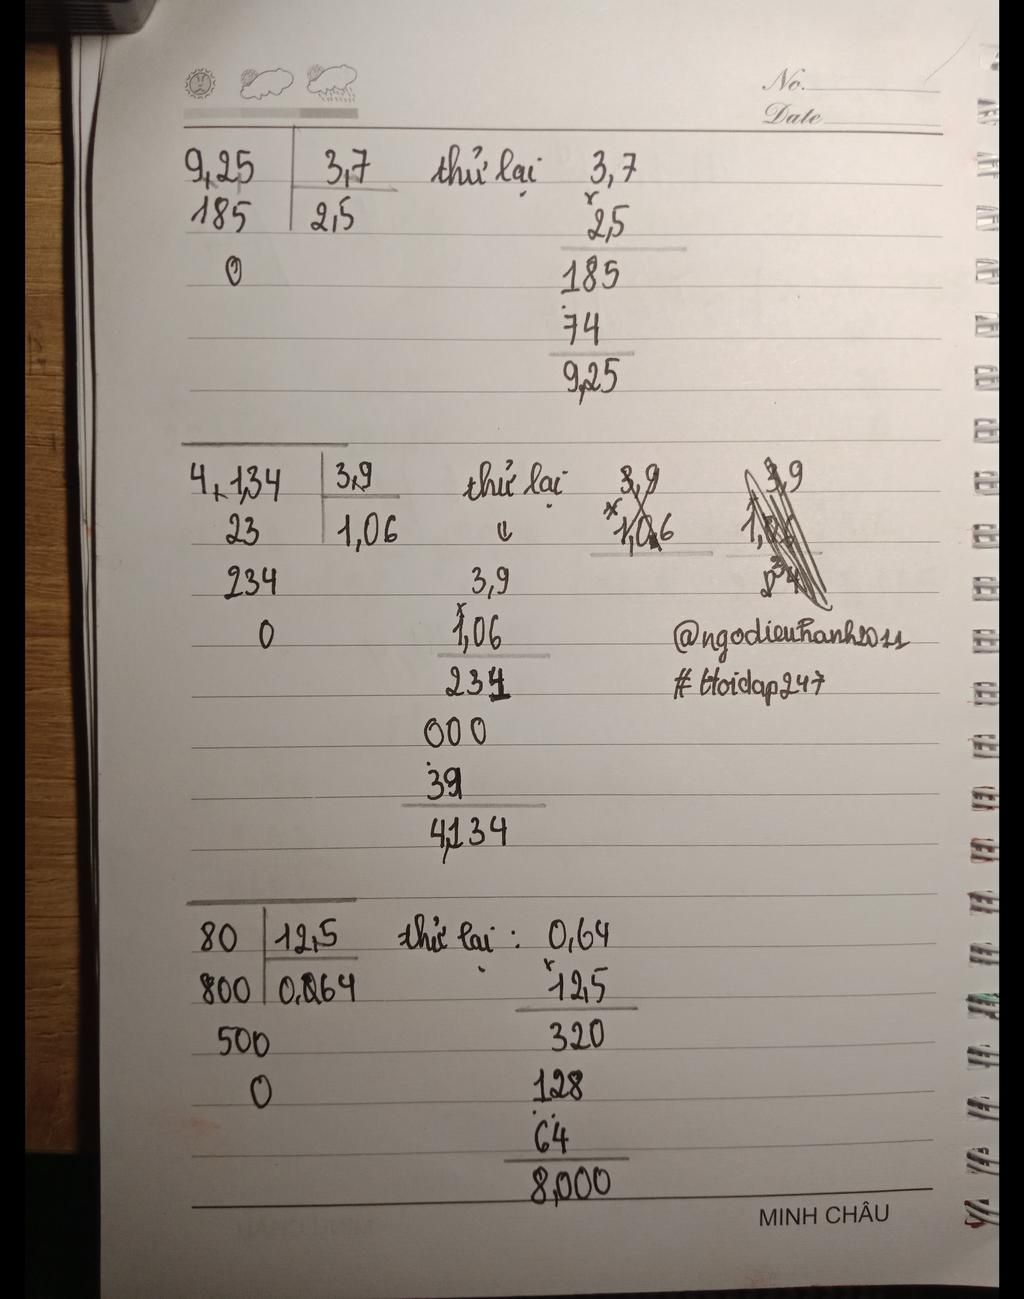 No.
Date
9,25 3,7 thử lại 3,7
185 2,5 x 2,5
0 185
74
9,25
4,134 3,9 thử lại 3,9 3,9
23 1,06 ↓ x 1,06
234 3,9
0 x 1,06 @ngodieuhanh2011
234 # Hoidap247
000
39
4,134
80 12,5 thử lại : 0,64
800 x 12,5
500 320
0 128
64
8,000
MINH CHÂU